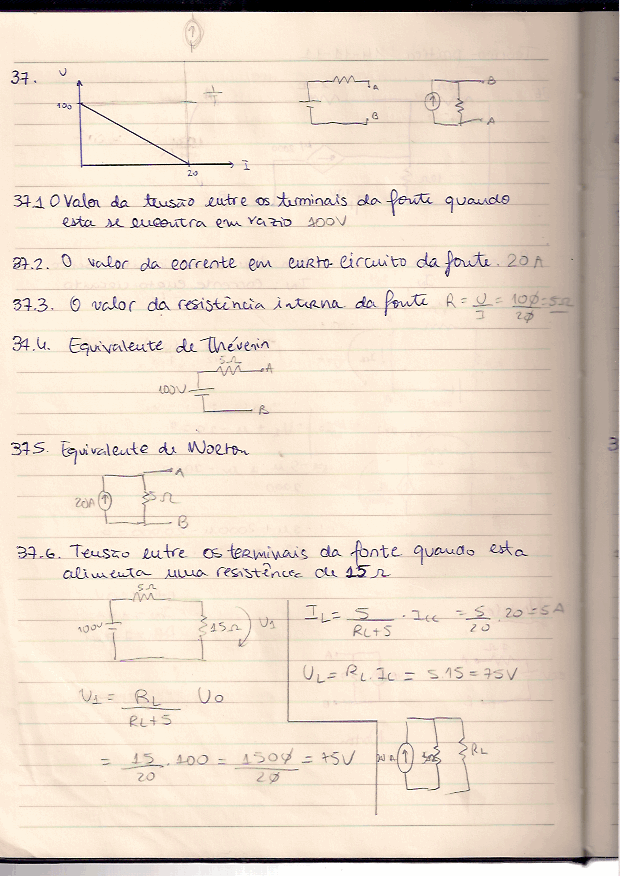 37.
U
100
20
I
A
B
B
A
37.1 O Valor da tensão entre os terminais da fonte quando
esta se encontra em vazio 100V
37.2. O valor da corrente em curto circuito da fonte. 20A
37.3. O valor da resistência interna da fonte R = U/I = 100/20 = 5Ω
37.4. Equivalente de Thévenin
5Ω
A
100V
B
37.5. Equivalente de Norton
A
20A
5Ω
B
37.6. Tensão entre os terminais da fonte quando esta
alimenta uma resistência de 15Ω
5Ω
100V
15Ω
U1
U1 = RL/RL+5 U0
= 15/20 . 100 = 1500/20 = 75V
IL = 5/RL+5 . Icc = 5/20 . 20 = 5A
UL = RL . IL = 5 15 = 75V
RL
3